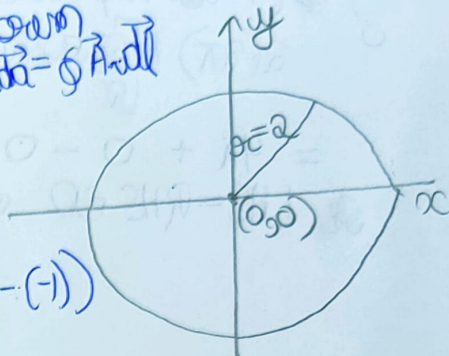 da⃗ = ∮A⃗.dl⃗
y
=2
(0,0)
x
-(-1))